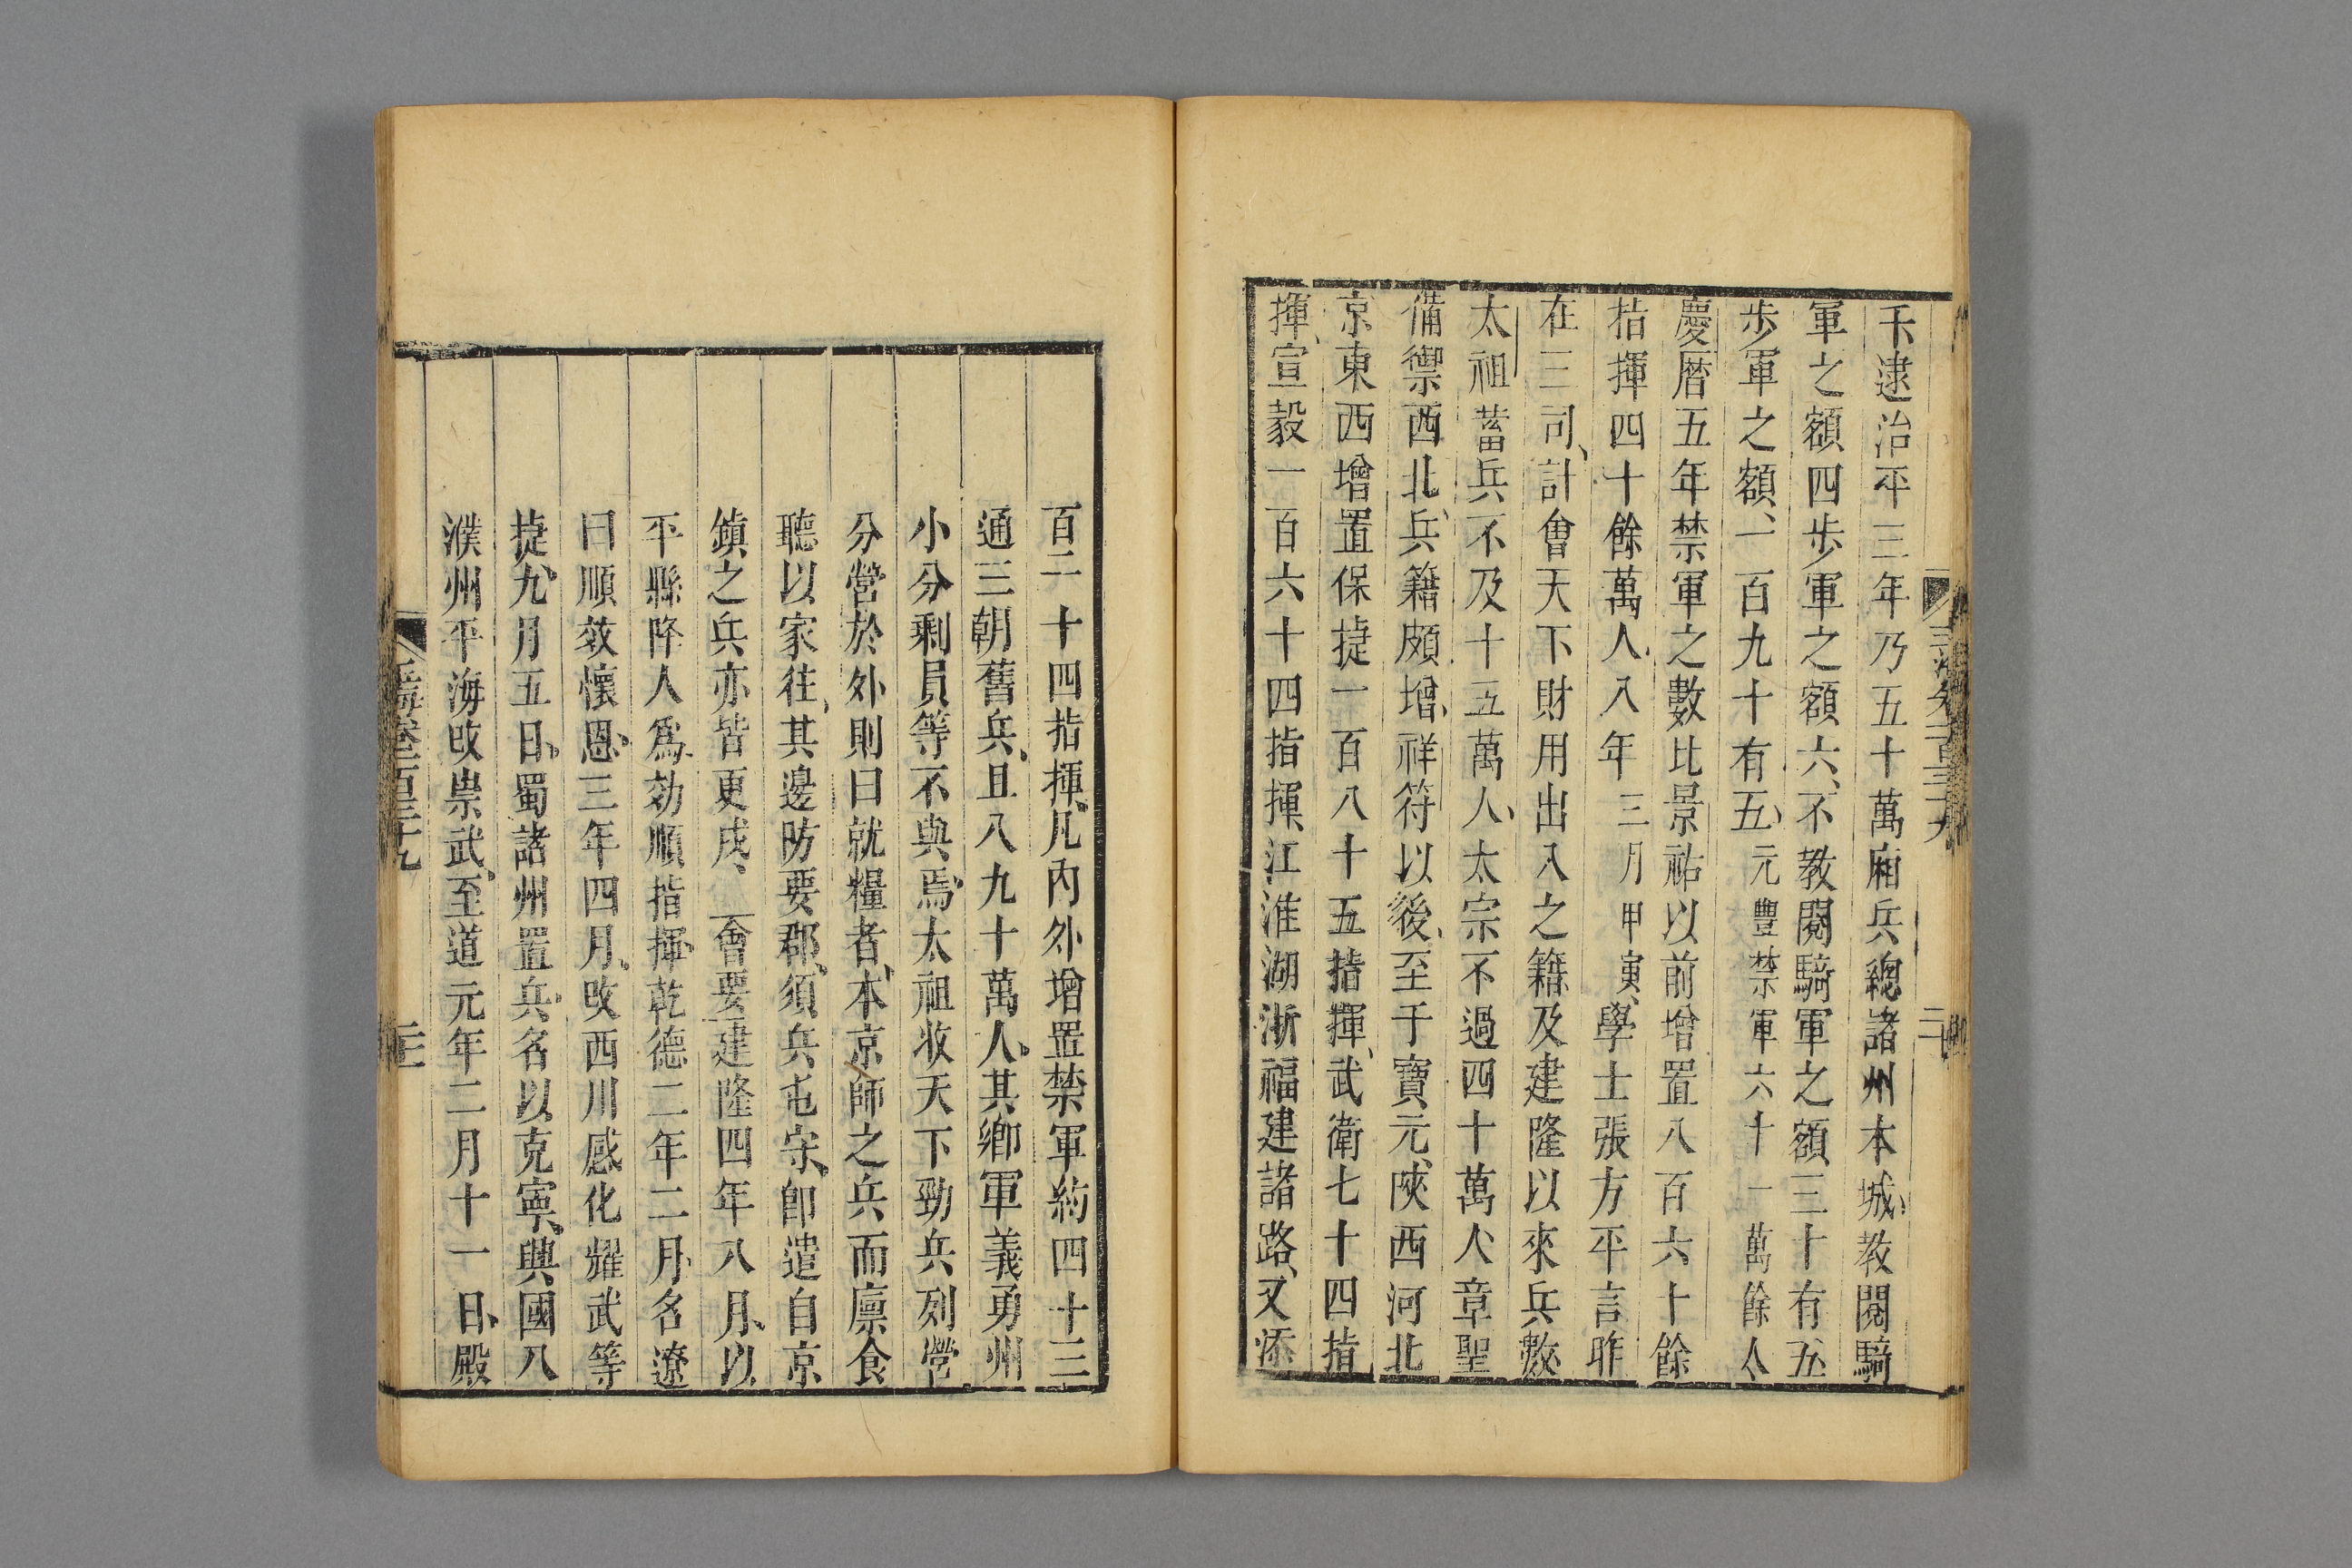 千逮治平三年乃五十萬廂兵總諸州本城教閱騎
軍之額四步軍之額六不教閱騎軍之額三十有五
步軍之額一百九十有五元豐禁軍六十一萬餘人
慶曆五年禁軍之數比景祐以前增置八百六十餘
指揮四十餘萬人八年三月甲寅學士張方平言昨
在三司計會天下財用出入之籍及建隆以來兵數
太祖蓄兵不及十五萬人太宗不過四十萬人章聖
備禦西北兵籍頗增祥符以後至于寶元陝西河北
京東西增置保捷一百八十五指揮武衛七十四指
揮宣毅一百六十四指揮江淮湖浙福建諸路又添
百二十四指揮凡內外增置禁軍約四十三
通三朝舊兵且八九十萬人其鄉軍義勇州
小分剩員等不與焉太祖收天下勁兵列營
分營於外則曰就糧者本京師之兵而廩食
聽以家往其邊防要郡須兵屯守卽遣自京
鎮之兵亦皆更戍會要建隆四年八月以
平縣降人爲効順指揮乾德二年二月名遼
曰順效懷恩三年四月改西川感化耀武等
捷九月五日蜀諸州置兵名以克寧興國八
濮州平海改崇武至道元年二月十一日殿
玉海卷一百三十九
二三